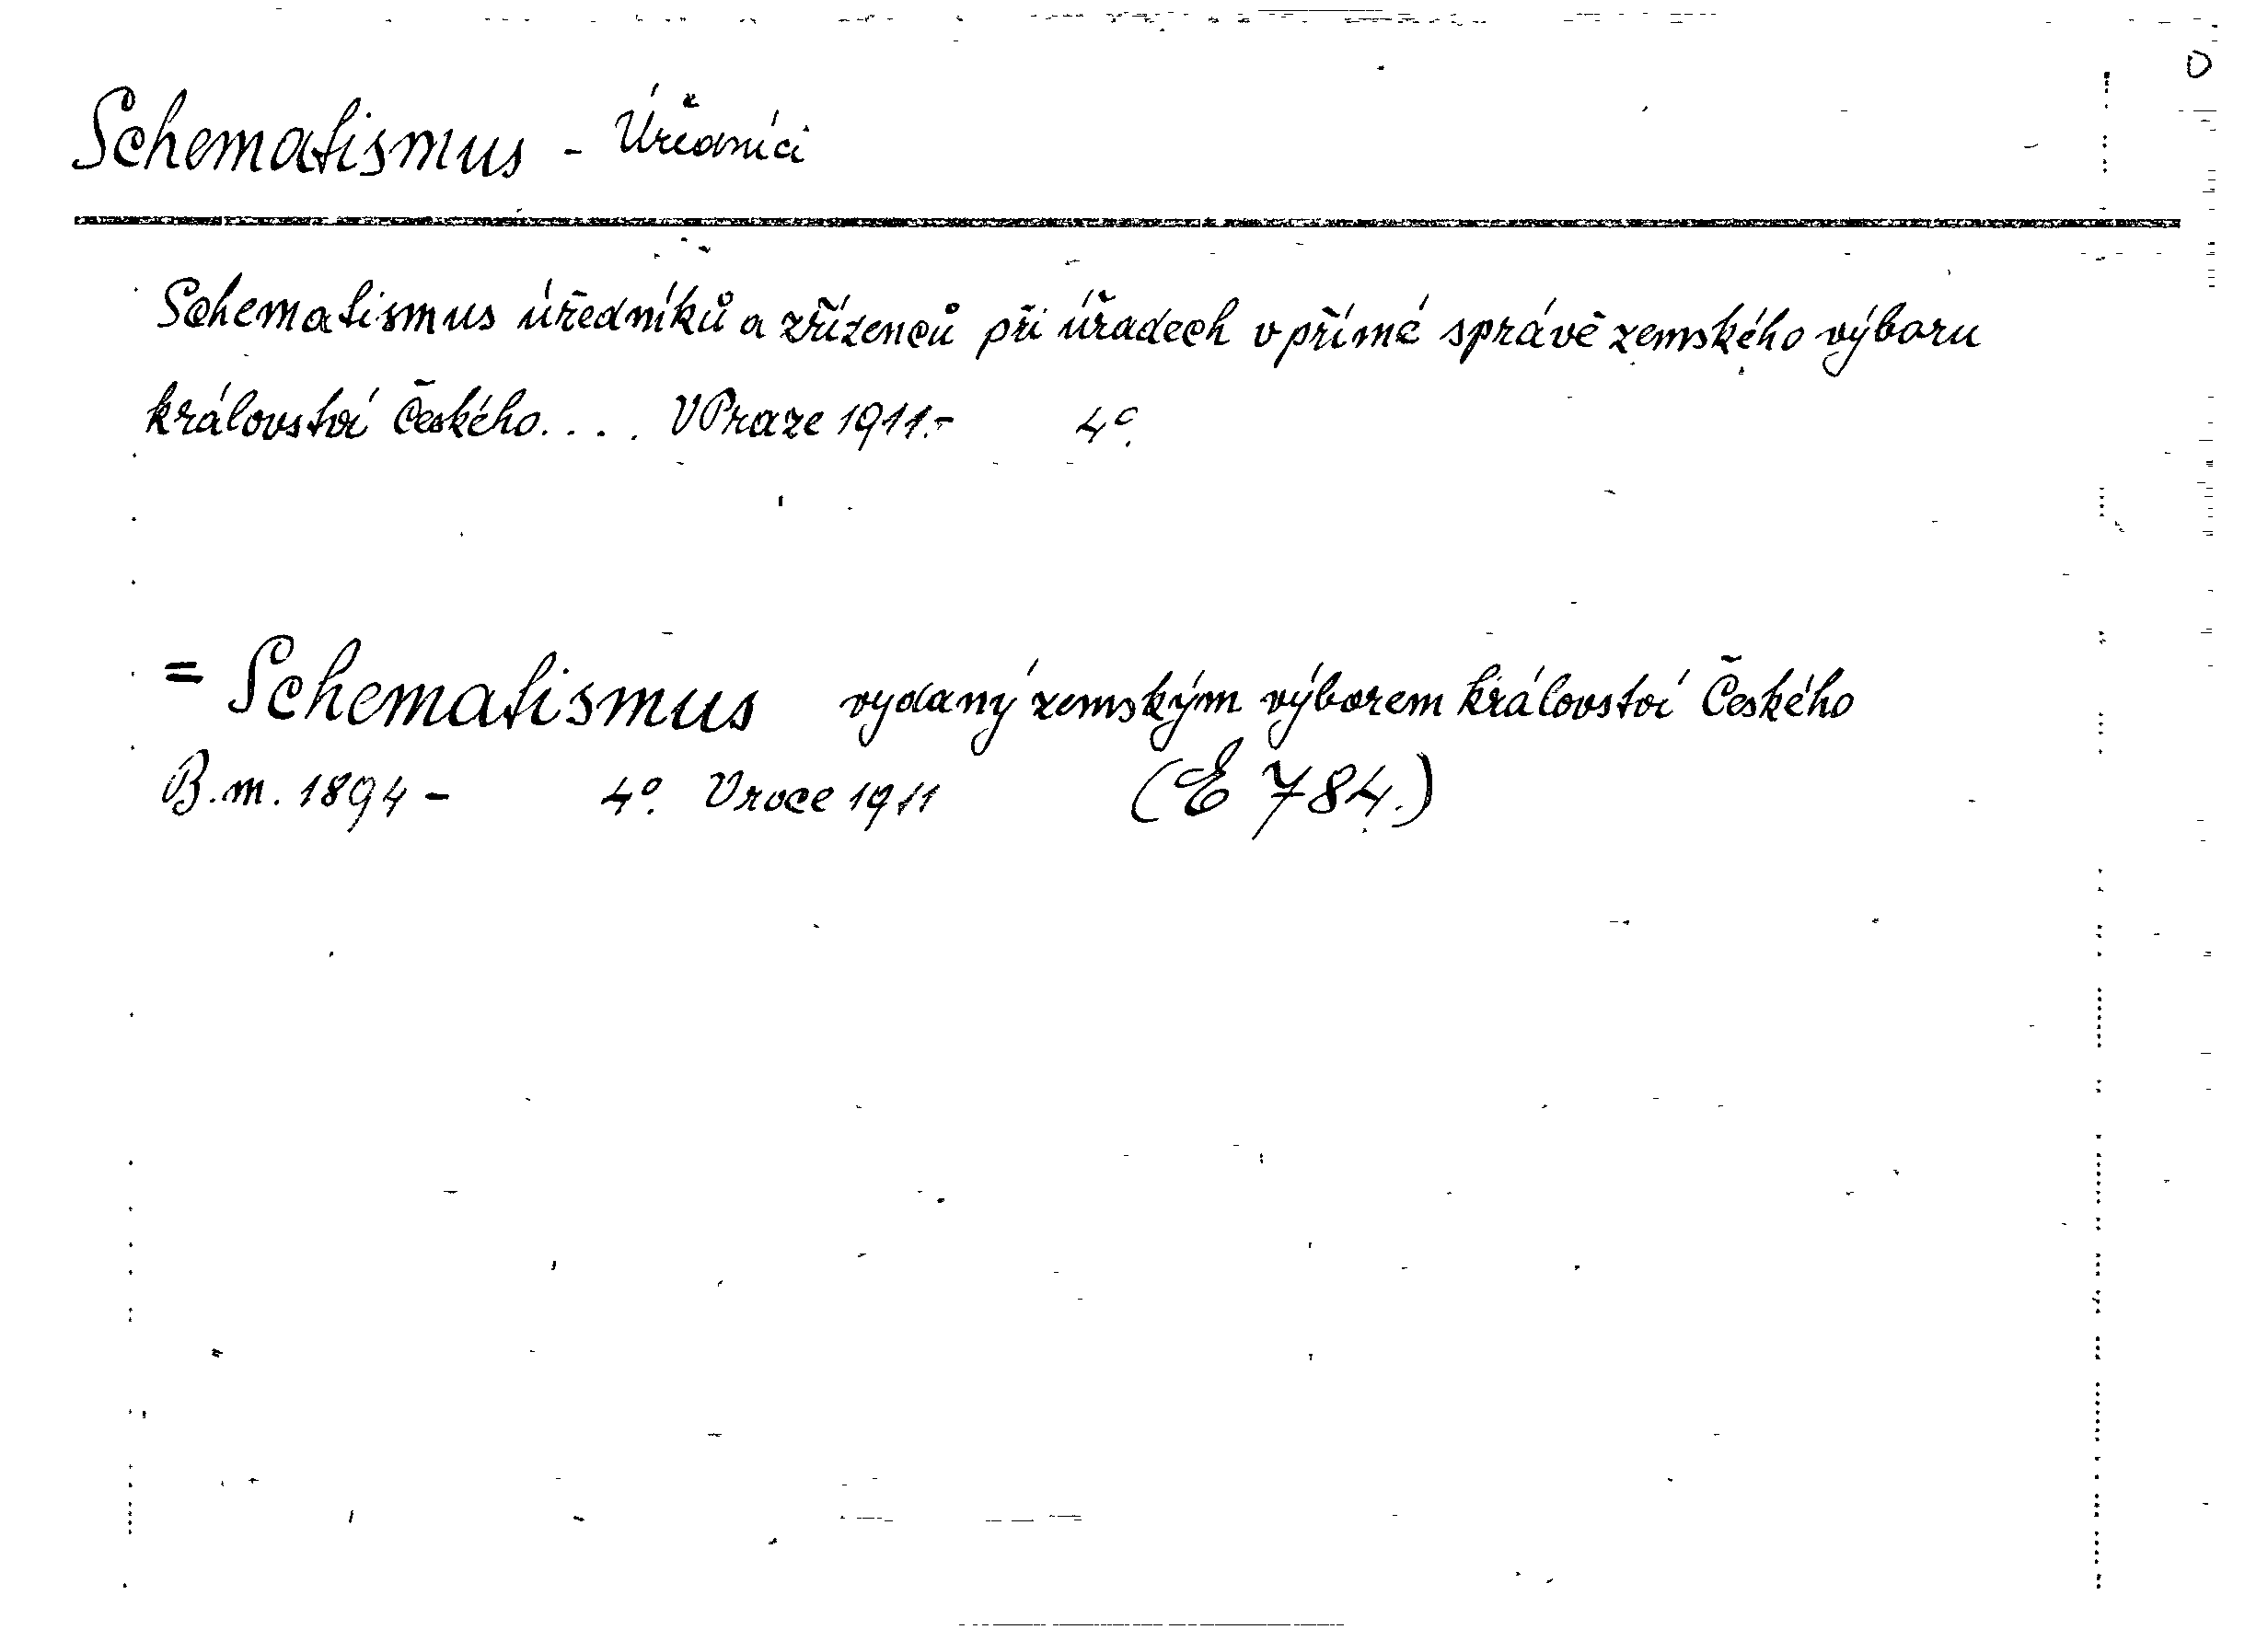 Schematismus - Úředníci
Schematismus úředníků a zřízenců při úřadech v přímé správě zemského výboru
království Českého.... V Praze 1911.- 4°.
= Schematismus vydaný zemským výborem království Českého
B.m. 1894 - 4°. V roce 1911 (E 784.)